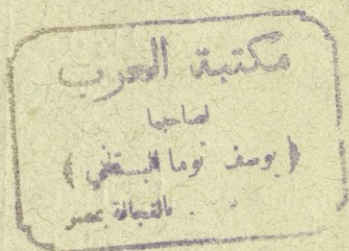 مكتبة العرب
لصاحبها
( يوسف توما البستاني )
بالفجالة بمصر